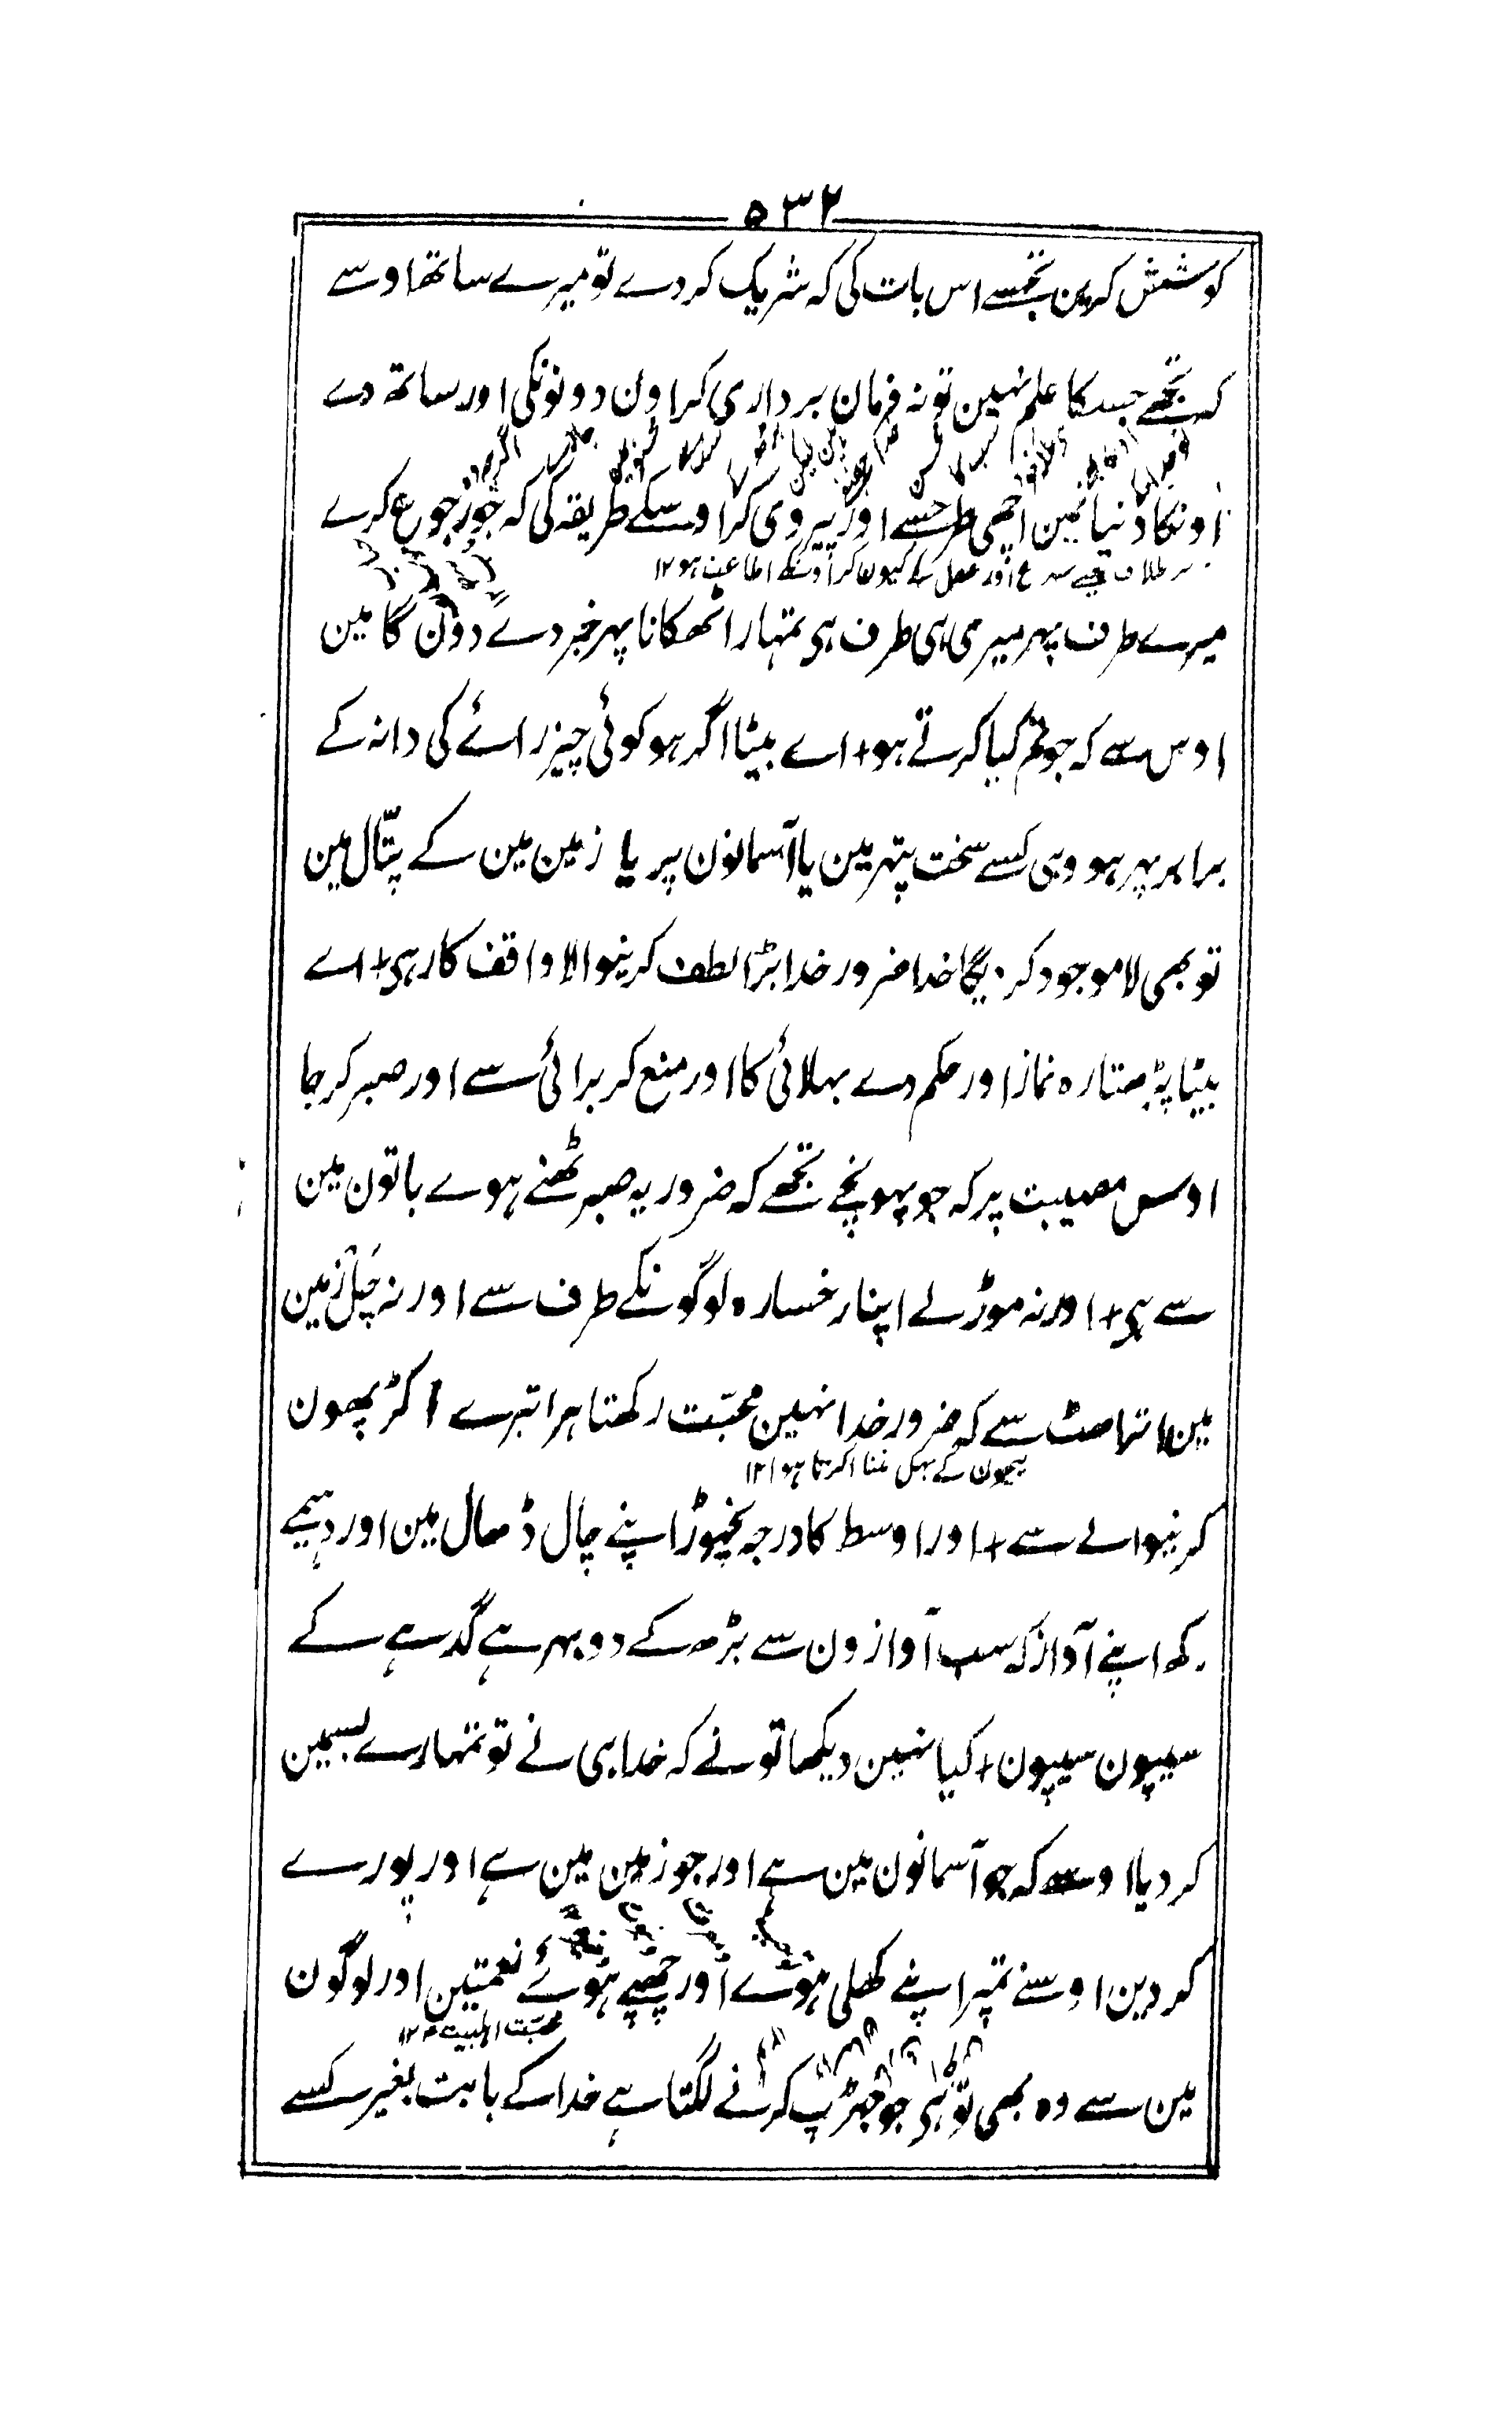 ۵۳۲
کوشش کرین تجھسے اس بات کی کہ شریک کر دے تو میرے ساتھ اوسے
کہ تجھے جسکا علم نہین تو نہ فرمان برداری کر اون دونونکی اور ساتھ دے
اونکا دنیا مین اچھی طرحسے اور پیروی کر اوسکے طریقہ کی کہ جو رجوع کرے
اور عقل کے کیون کر اونکے اطاعت ہو ۱۲
میرے طرف پہر میری ہی طرف ہی تمہارا ٹھکانا پہر خبر دے دون گا مین
اوس سے کہ جو تم کیا کرتے ہو + اے بیٹا اگر ہو کوئی چیز رائے کی دانہ کے
برابر پہر ہو وہی کسے سخت پتہر مین یا آسمانون پر یا زمین مین کے پتّال مین
تو بھی لا موجود کر دیگا خدا ضرور خدا بڑا لطف کرنیوالا واقف کار ہی + اے
بیٹا پڑہتا رہ نماز اور حکم دے بہلائی کا اور منع کر برائی سے اور صبر کر جا
اوس مصیبت پر کہ جو پہونچے تجھے کہ ضرور یہ صبر ٹھنے ہوے باتون مین
سے ہی + اور نہ موڑ لے اپنا رخسارہ لوگونکے طرف سے اور نہ چل زمین
مین اتراہٹ سے کہ ضرور خدا نہین محبّت رکھتا ہر اتیرے اکڑ پھون
کرنیوالے سے + اور اوسط کا درجہ نچھوڑ اپنے چال ڈھال مین اور دہیمے
رکھ اپنے آواز کہ سب آوازون سے بڑھ کے دوبہر ہے گدہے کے
سیپون سیپون + کیا نہین دیکھا تو نے کہ خدا ہی نے تو تمہارے بسمین
کر دیا اوسے کہ جو آسمانون مین ہے اور جو زمین مین ہے اور پورے
کر دین اوسنے تمپر اپنے کھلی ہوے اور چھپے ہوئے نعمتین اور لوگون
محبّت اہلبیت ۱۲
مین سے وہ بھی تو ہی جو جھڑپ کرنے لگتا ہے خدا کے بابت بغیر کسے